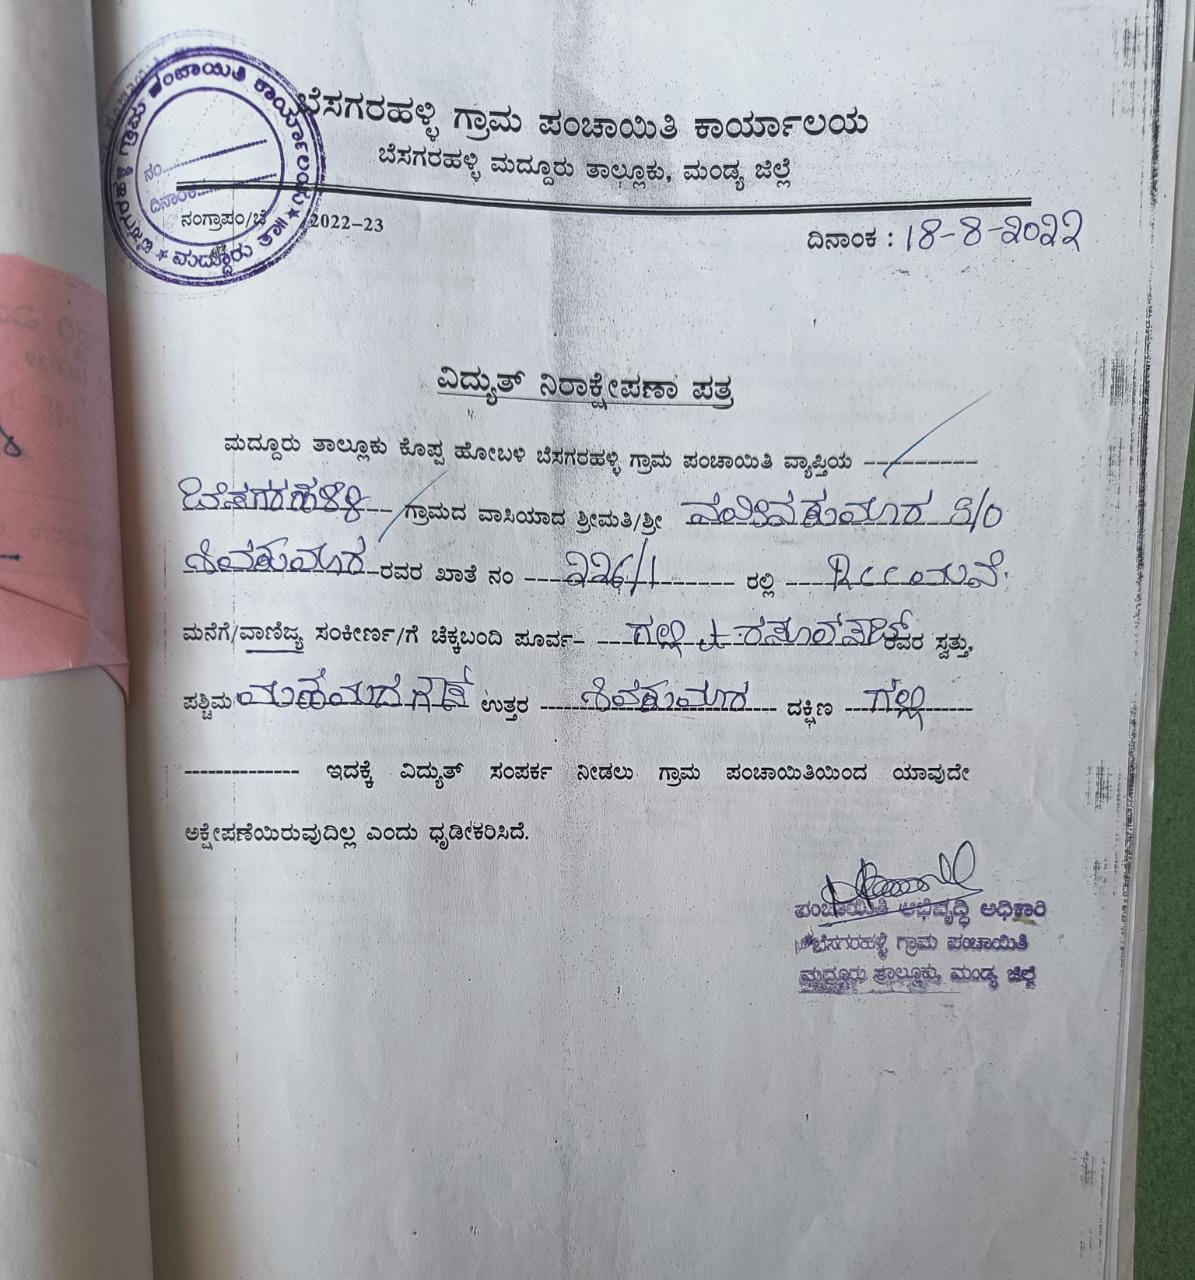 ಬೆಸಗರಹಳ್ಳಿ ಗ್ರಾಮ ಪಂಚಾಯಿತಿ ಕಾರ್ಯಾಲಯ
ಬೆಸಗರಹಳ್ಳಿ ಮದ್ದೂರು ತಾಲ್ಲೂಕು, ಮಂಡ್ಯ ಜಿಲ್ಲೆ
ಗ್ರಾಮ ಪಂಚಾಯಿತಿ ಕಾರ್ಯಾಲಯ
ನಂ
ದಿನಾಂಕ
ಮದ್ದೂರು ತಾ||
ನಂಗ್ರಾಪಂ/ಬೆ /2022-23
ದಿನಾಂಕ : 18-8-2022
ವಿದ್ಯುತ್ ನಿರಾಕ್ಷೇಪಣಾ ಪತ್ರ
ಮದ್ದೂರು ತಾಲ್ಲೂಕು ಕೊಪ್ಪ ಹೋಬಳಿ ಬೆಸಗರಹಳ್ಳಿ ಗ್ರಾಮ ಪಂಚಾಯಿತಿ ವ್ಯಾಪ್ತಿಯ
ಬೆಸಗರಹಳ್ಳಿ ಗ್ರಾಮದ ವಾಸಿಯಾದ ಶ್ರೀಮತಿ/ಶ್ರೀ S/O
ಶಿವಕುಮಾರ ರವರ ಖಾತೆ ನಂ 226/1 ರಲ್ಲಿ
ಮನೆಗೆ/ವಾಣಿಜ್ಯ ಸಂಕೀರ್ಣ/ಗೆ ಚೆಕ್ಕಬಂದಿ ಪೂರ್ವ- ಗಲ್ಲಿ ರವರ ಸ್ವತ್ತು,
ಪಶ್ಚಿಮ ಉತ್ತರ ಶಿವಕುಮಾರ ದಕ್ಷಿಣ ಗಲ್ಲಿ
ಇದಕ್ಕೆ ವಿದ್ಯುತ್ ಸಂಪರ್ಕ ನೀಡಲು ಗ್ರಾಮ ಪಂಚಾಯಿತಿಯಿಂದ ಯಾವುದೇ
ಅಕ್ಷೇಪಣೆಯಿರುವುದಿಲ್ಲ ಎಂದು ಧೃಡೀಕರಿಸಿದೆ.
ಪಂಚಾಯಿತಿ ಅಭಿವೃದ್ಧಿ ಅಧಿಕಾರಿ
ಬೆಸಗರಹಳ್ಳಿ ಗ್ರಾಮ ಪಂಚಾಯಿತಿ
ಮದ್ದೂರು ತಾಲ್ಲೂಕು, ಮಂಡ್ಯ ಜಿಲ್ಲೆ